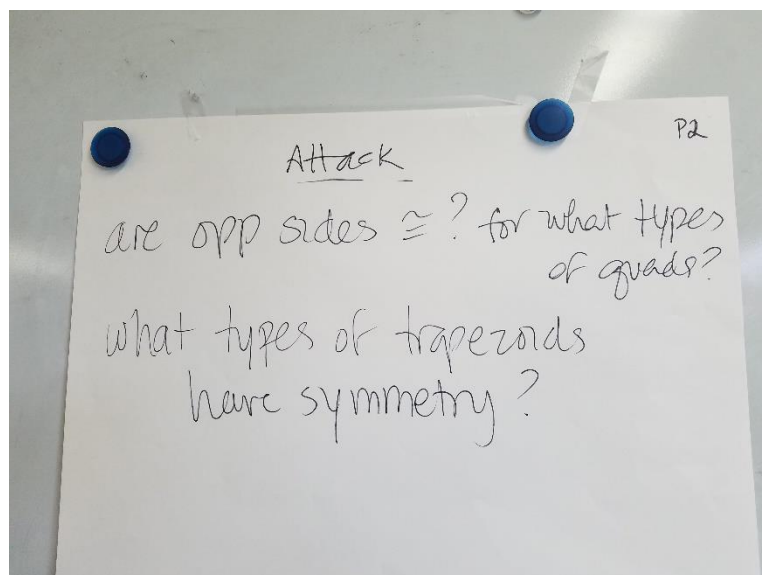 P2
Attack
are opp sides ≅? for what types
of quads?
what types of trapezoids
have symmetry?